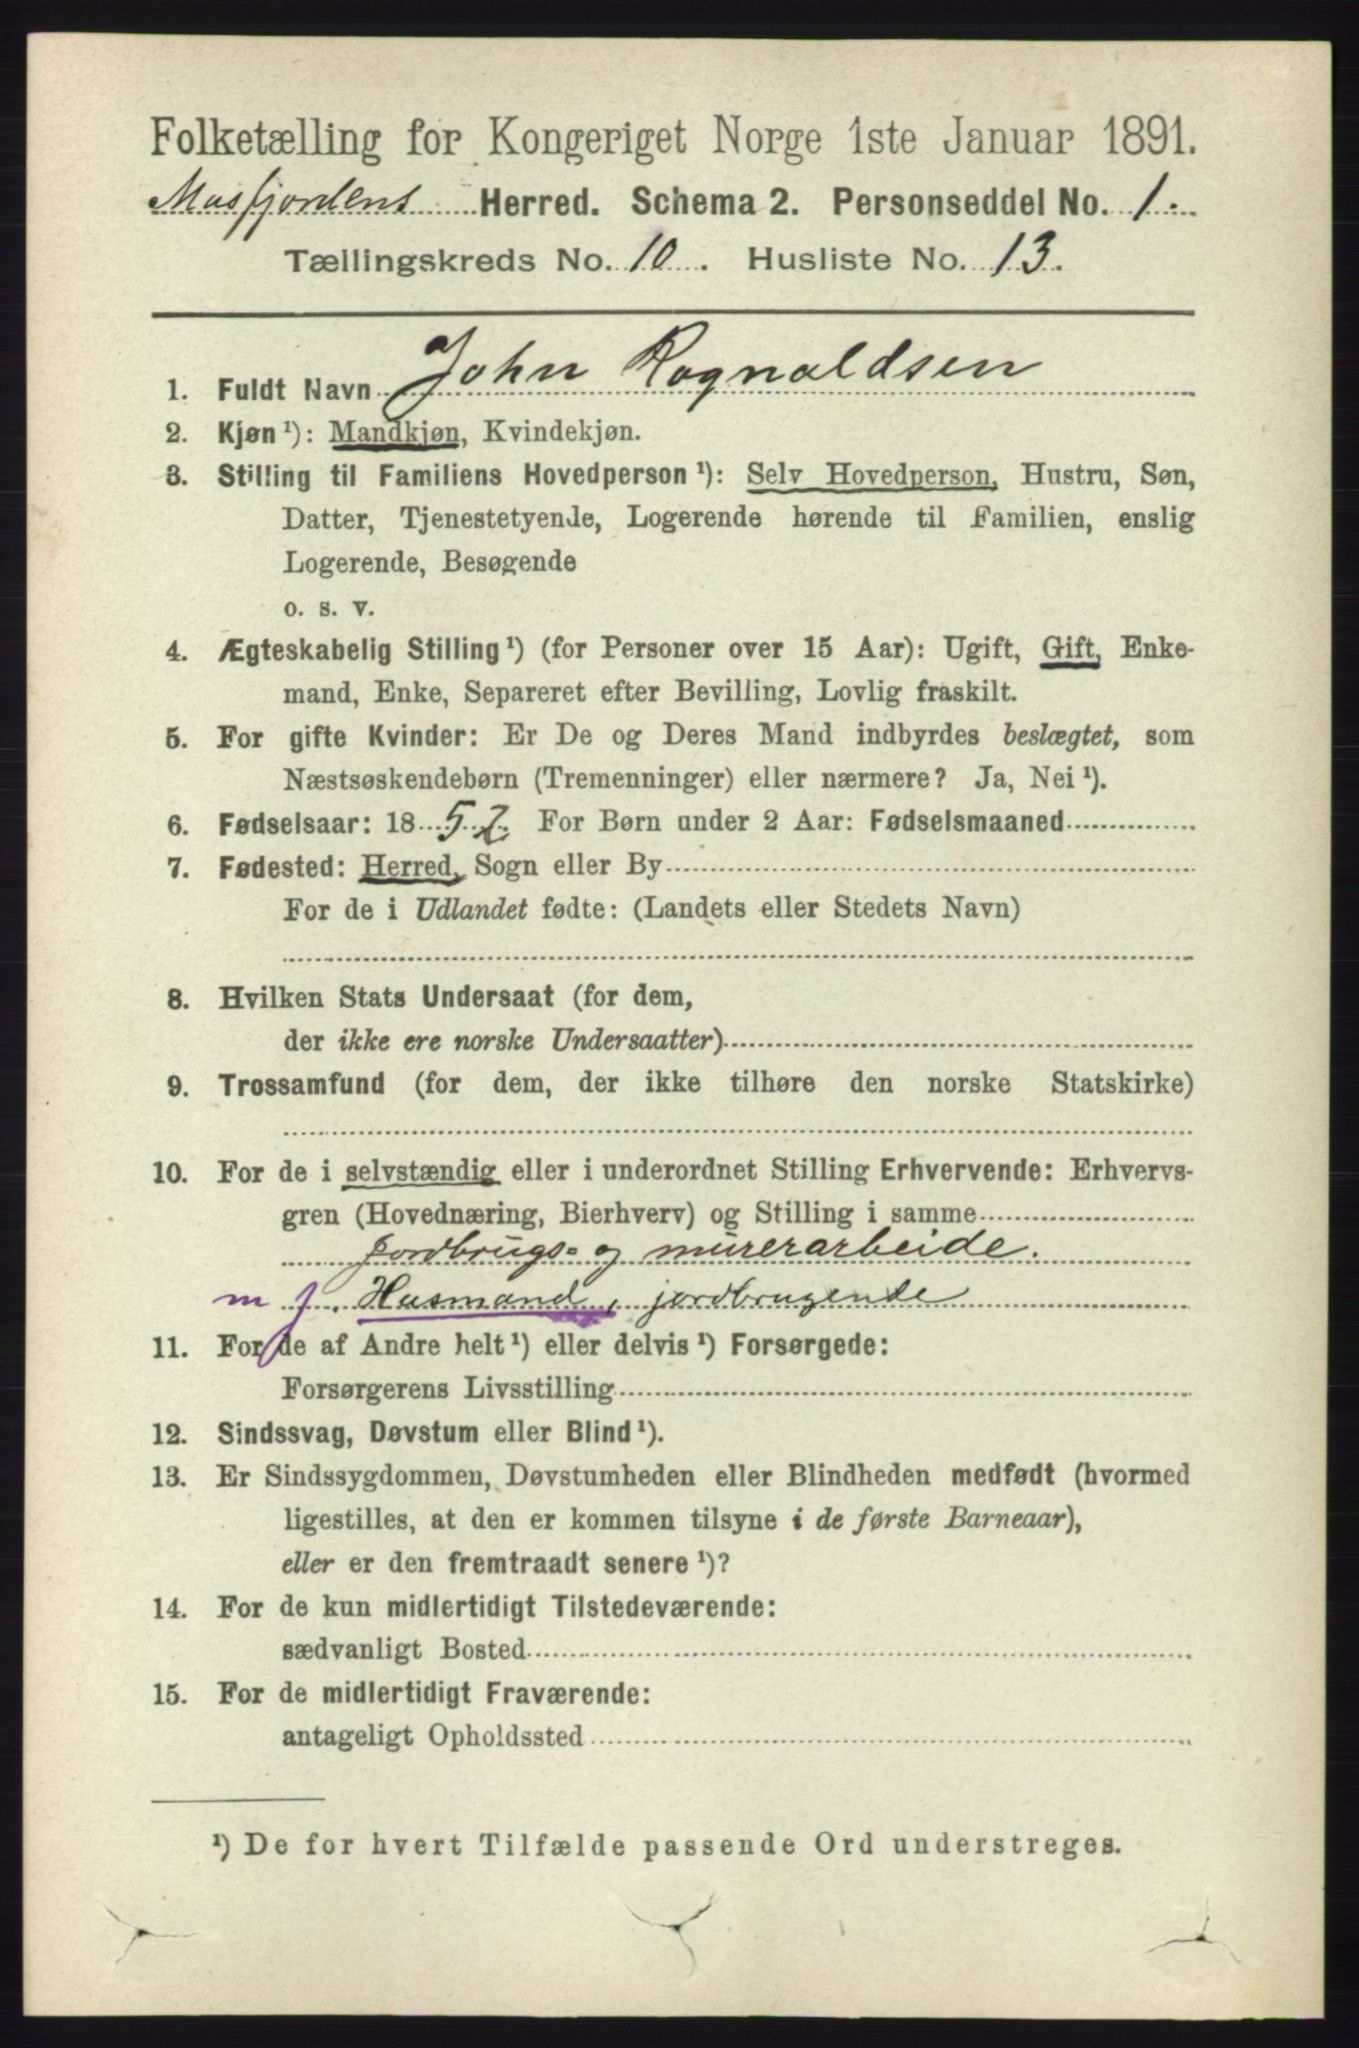 Folketælling for Kongeriget Norge 1ste Januar 1891.
Masfjordens Herred. Schema 2. Personseddel No. 1.
Tællingskreds No. 10. Husliste No. 13.
1. Fuldt Navn John Rognaldsen
2. Kjøn¹): Mandkjøn, Kvindekjøn.
3. Stilling til Familiens Hovedperson¹): Selv Hovedperson, Hustru, Søn,
Datter, Tjenestetyende, Logerende hørende til Familien, enslig
Logerende, Besøgende
o. s. v.
4. Ægteskabelig Stilling¹) (for Personer over 15 Aar): Ugift, Gift, Enke-
mand, Enke, Separeret efter Bevilling, Lovlig fraskilt.
5. For gifte Kvinder: Er De og Deres Mand indbyrdes beslægtet, som
Næstsøskendebørn (Tremenninger) eller nærmere? Ja, Nei¹).
6. Fødselsaar: 1852 For Børn under 2 Aar: Fødselsmaaned
7. Fødested: Herred, Sogn eller By
For de i Udlandet fødte: (Landets eller Stedets Navn)
8. Hvilken Stats Undersaat (for dem,
der ikke ere norske Undersaatter)
9. Trossamfund (for dem, der ikke tilhøre den norske Statskirke)
10. For de i selvstændig eller i underordnet Stilling Erhvervende: Erhvervs-
gren (Hovednæring, Bierhverv) og Stilling i samme
Jordbrugs- og murerarbeide.
m j. Husmand, jordbrugende
11. For de af Andre helt¹) eller delvis¹) Forsørgede:
Forsørgerens Livsstilling
12. Sindssvag, Døvstum eller Blind¹).
13. Er Sindssygdommen, Døvstumheden eller Blindheden medfødt (hvormed
ligestilles, at den er kommen tilsyne i de første Barneaar),
eller er den fremtraadt senere¹)?
14. For de kun midlertidigt Tilstedeværende:
sædvanligt Bosted
15. For de midlertidigt Fraværende:
antageligt Opholdssted
¹) De for hvert Tilfælde passende Ord understreges.